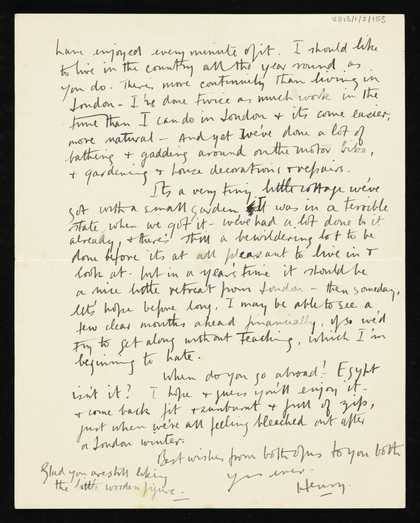 have enjoyed every minute of it. I should like
to live in the country all the year round as
you do. There's more continuity than living in
London - I've done twice as much work in the
time than I can do in London & it's come easier,
more natural - And yet we've done a lot of
bathing & gadding around on the motor bike,
& gardening & house decorations & repairs.
Its a very tiny little cottage we've
got with a small garden. It was in a terrible
state when we got it - we've had a lot done to it
already, & there's still a bewildering lot to be
done before its at all pleasant to live in &
look at. but in a year's time it should be
a nice little retreat from London - then someday,
let's hope before long, I may be able to see a
few clear months ahead financially, if so we'd
try to get along without teaching, which I'm
beginning to hate.
When do you go abroad? Egypt
isn't it? I hope & guess you'll enjoy it -
& come back fit & sunburnt & full of zip,
just when we're all feeling bleached out after
a London winter.
Best wishes from both of us to you both
yrs ever.
Henry.
Glad you are still liking
the little wooden figure.